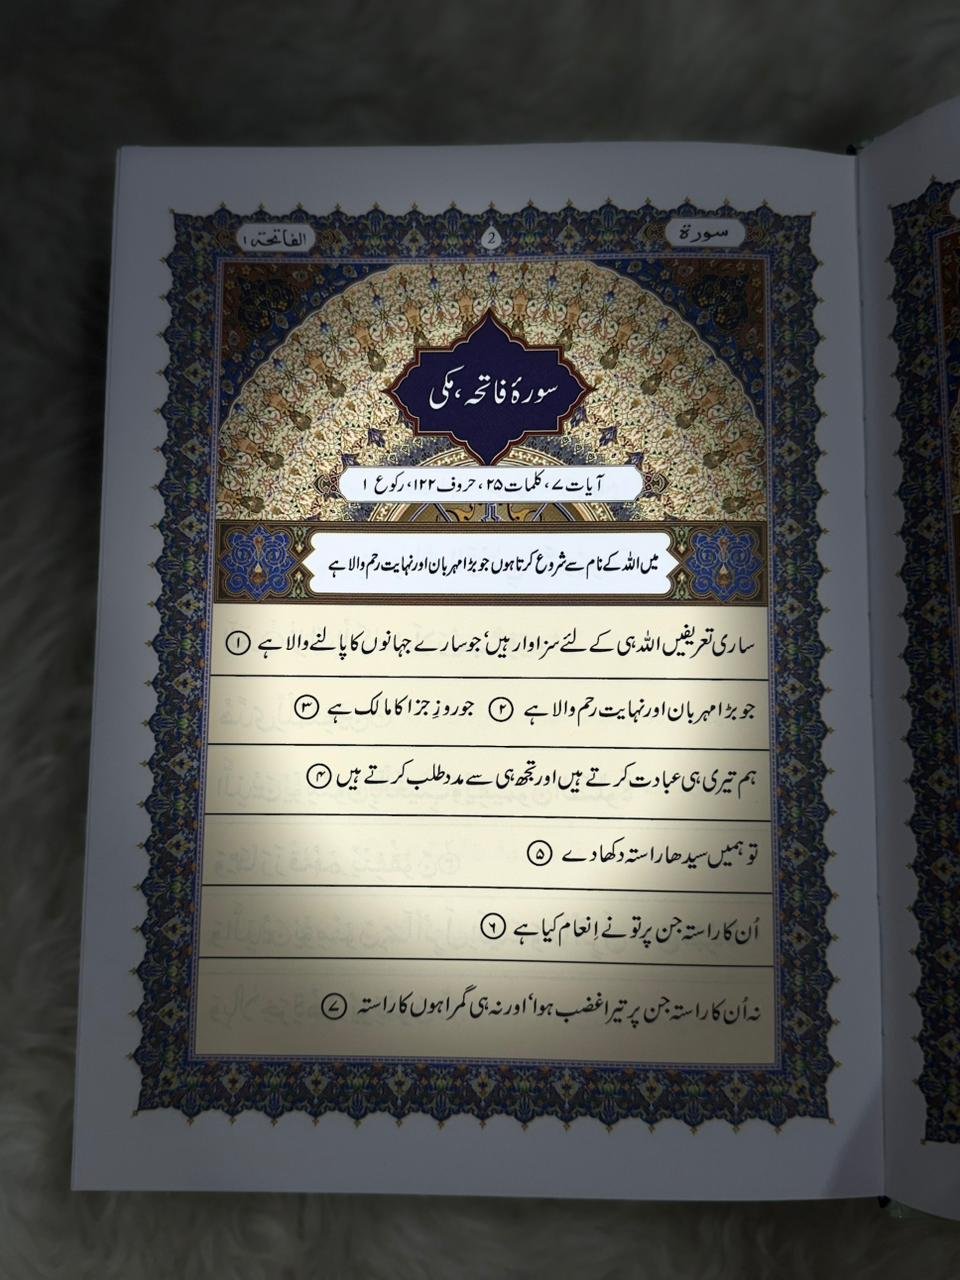 سورۃ
2
الفاتحۃ ۱
سورۂ فاتحہ، مکی
آیات ۷، کلمات ۲۵، حروف ۱۲۲، رکوع ۱
میں اللہ کے نام سے شروع کرتا ہوں جو بڑا مہربان اور نہایت رحم والا ہے
ساری تعریفیں اللہ ہی کے لئے سزاوار ہیں، جو سارے جہانوں کا پالنے والا ہے ۱
جو بڑا مہربان اور نہایت رحم والا ہے ۲ جو روزِ جزا کا مالک ہے ۳
ہم تیری ہی عبادت کرتے ہیں اور تجھ ہی سے مدد طلب کرتے ہیں ۴
تو ہمیں سیدھا راستہ دکھا دے ۵
اُن کا راستہ جن پر تو نے اِنعام کیا ہے ۶
نہ اُن کا راستہ جن پر تیرا غضب ہوا، اور نہ ہی گمراہوں کا راستہ ۷